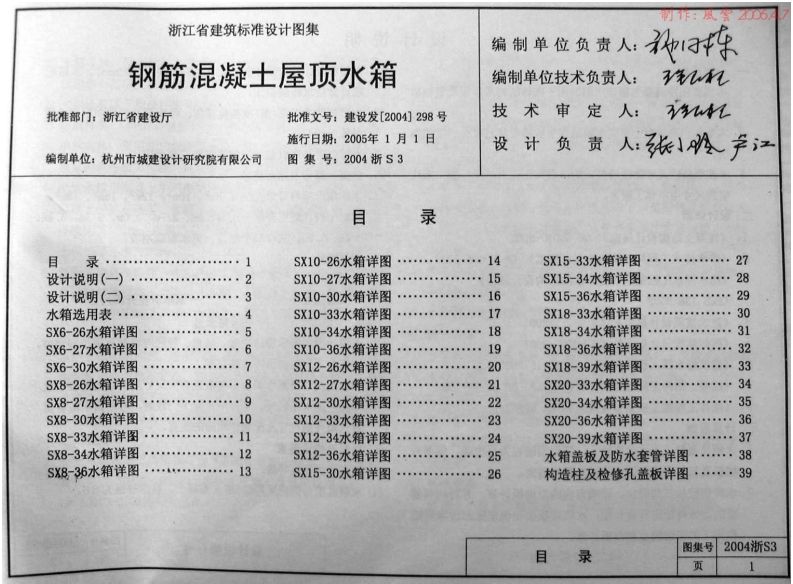 制作:风雪 2006.4.7
浙江省建筑标准设计图集
钢筋混凝土屋顶水箱
批准部门：浙江省建设厅
批准文号：建设发[2004]298号
施行日期：2005年1月1日
编制单位：杭州市城建设计研究院有限公司
图集号：2004浙S3
编制单位负责人：
编制单位技术负责人：
技术审定人：
设计负责人：张小玲 卢江
目 录
目 录 1
设计说明(一) 2
设计说明(二) 3
水箱选用表 4
SX6-26水箱详图 5
SX6-27水箱详图 6
SX6-30水箱详图 7
SX8-26水箱详图 8
SX8-27水箱详图 9
SX8-30水箱详图 10
SX8-33水箱详图 11
SX8-34水箱详图 12
SX8-36水箱详图 13
SX10-26水箱详图 14
SX10-27水箱详图 15
SX10-30水箱详图 16
SX10-33水箱详图 17
SX10-34水箱详图 18
SX10-36水箱详图 19
SX12-26水箱详图 20
SX12-27水箱详图 21
SX12-30水箱详图 22
SX12-33水箱详图 23
SX12-34水箱详图 24
SX12-36水箱详图 25
SX15-30水箱详图 26
SX15-33水箱详图 27
SX15-34水箱详图 28
SX15-36水箱详图 29
SX18-33水箱详图 30
SX18-34水箱详图 31
SX18-36水箱详图 32
SX18-39水箱详图 33
SX20-33水箱详图 34
SX20-34水箱详图 35
SX20-36水箱详图 36
SX20-39水箱详图 37
水箱盖板及防水套管详图 38
构造柱及检修孔盖板详图 39
目 录
图集号 2004浙S3
页 1